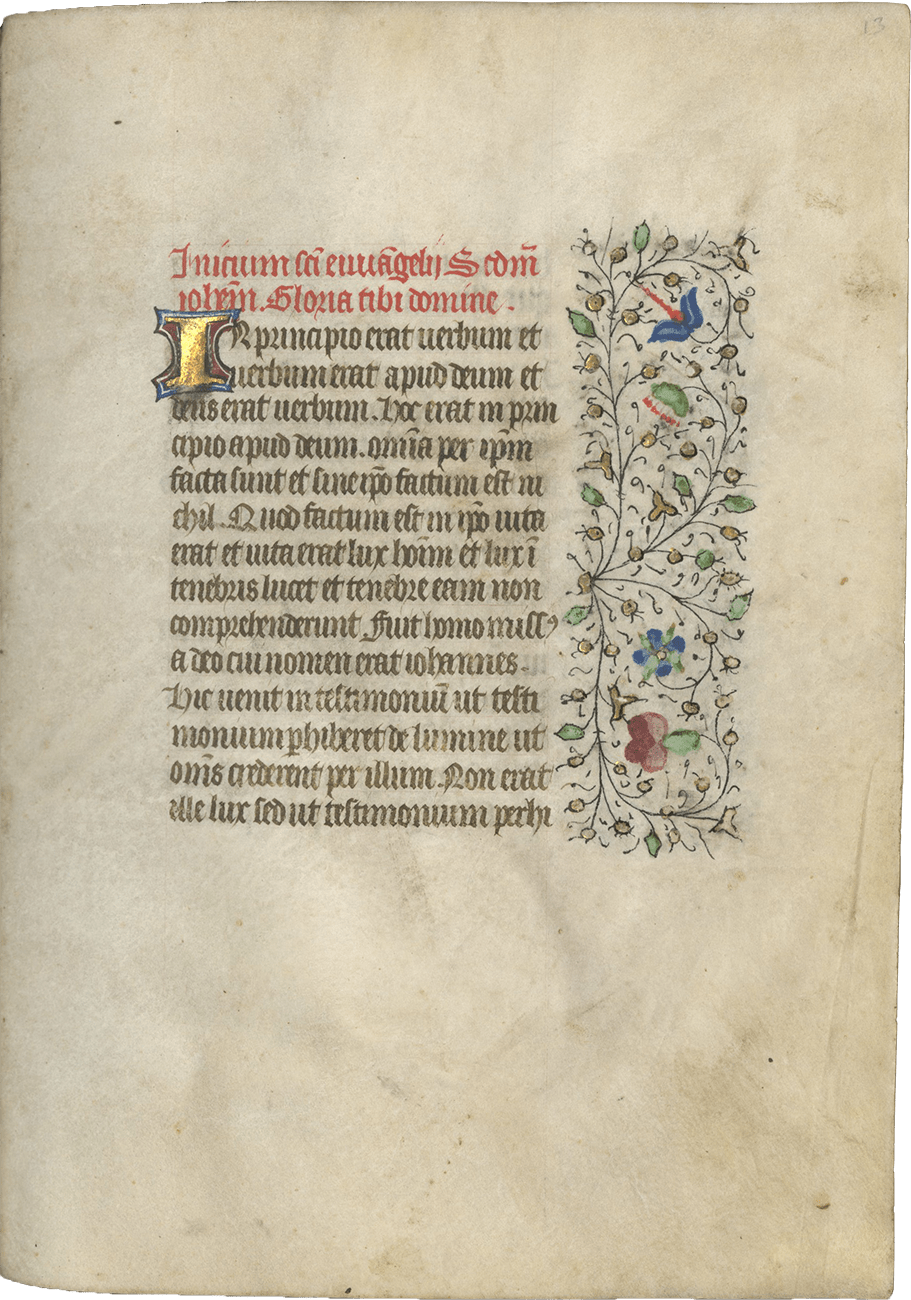 13
Inicium sc̄i euuāgelij Scdm̄
ioh̄em. Gloria tibi domine.
IN principio erat uerbum et
uerbum erat apud deum et
deus erat uerbum. Hoc erat in prin
cipio apud deum. om̄ia per ip̄m
facta sunt et sine ip̄o factum est ni
chil. Quod factum est in ip̄o uita
erat et uita erat lux hoīm et lux ī
tenebris lucet et tenebre eam non
comprehenderunt. Fuit homo missꝰ
a deo cui nomen erat iohannes.
Hic uenit in testimoniū ut testi
monium ꝑhiberet de lumine ut
om̄s crederent per illum. Non erat
ille lux sed ut testimonium perhi